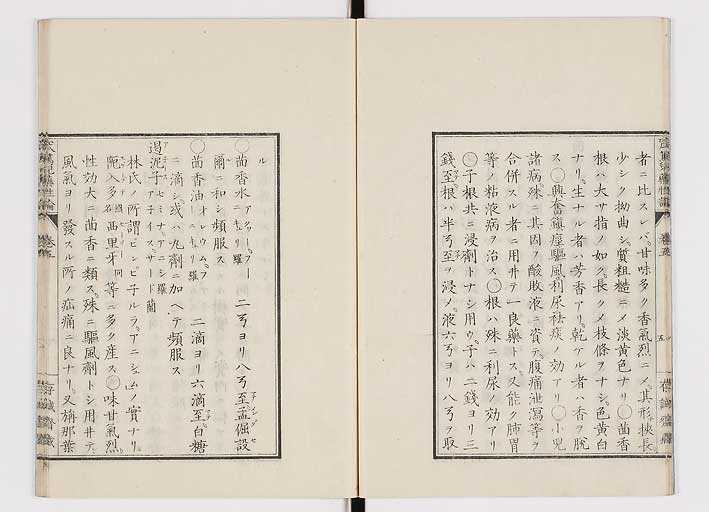 者ニ比スレバ。甘味多ク香氣烈ニメ。其形挾長。
少シク拗曲シ。質粗糙ニメ淡黄色ナリ〇茴香
根ハ大サ指ノ如ク。長クメ枝條ヲナシ。色黄白
ナリ。生ナル者ハ芳香アリ。乾アル者ハ香ヲ脱
ス〇興奮鎮痙驅風利尿祛痰ノ効アリ〇小兒
諸病殊ニ其因ヲ酸敗液ニ資テ。腹痛泄瀉等ヲ
合併スル者ニ用井テ一良藥トス。又能ク肺胃
等ノ粘液病ヲ治ス〇根ハ殊ニ利尿ノ効アリ
〇子根共ニ浸劑トナシ用ウ。子ハ二錢ヨリ三
錢至根ハ半弓至ヲ浸ノ液六弓ヨリ八弓ヲ取
ル
〇茴香水 二弓ヨリ八弓至孟倔設
爾ニ和シ頻服ス
〇茴香油 二滴ヨリ六滴至白糖
ニ滴シ或ハ丸劑ニ加ヘテ頻服ス
遏泥子
林氏ノ所謂ピンピ子ルラ。アニシュムノ實ナリ。
阨入多 西里牙 等ニ多ク産ス〇味甘氣烈。
性効大ニ茴香ニ類ス。殊ニ驅風劑トシ用井テ。
風氣ヨリ發スル所ノ疝痛ニ良ナリ。又旃那葉